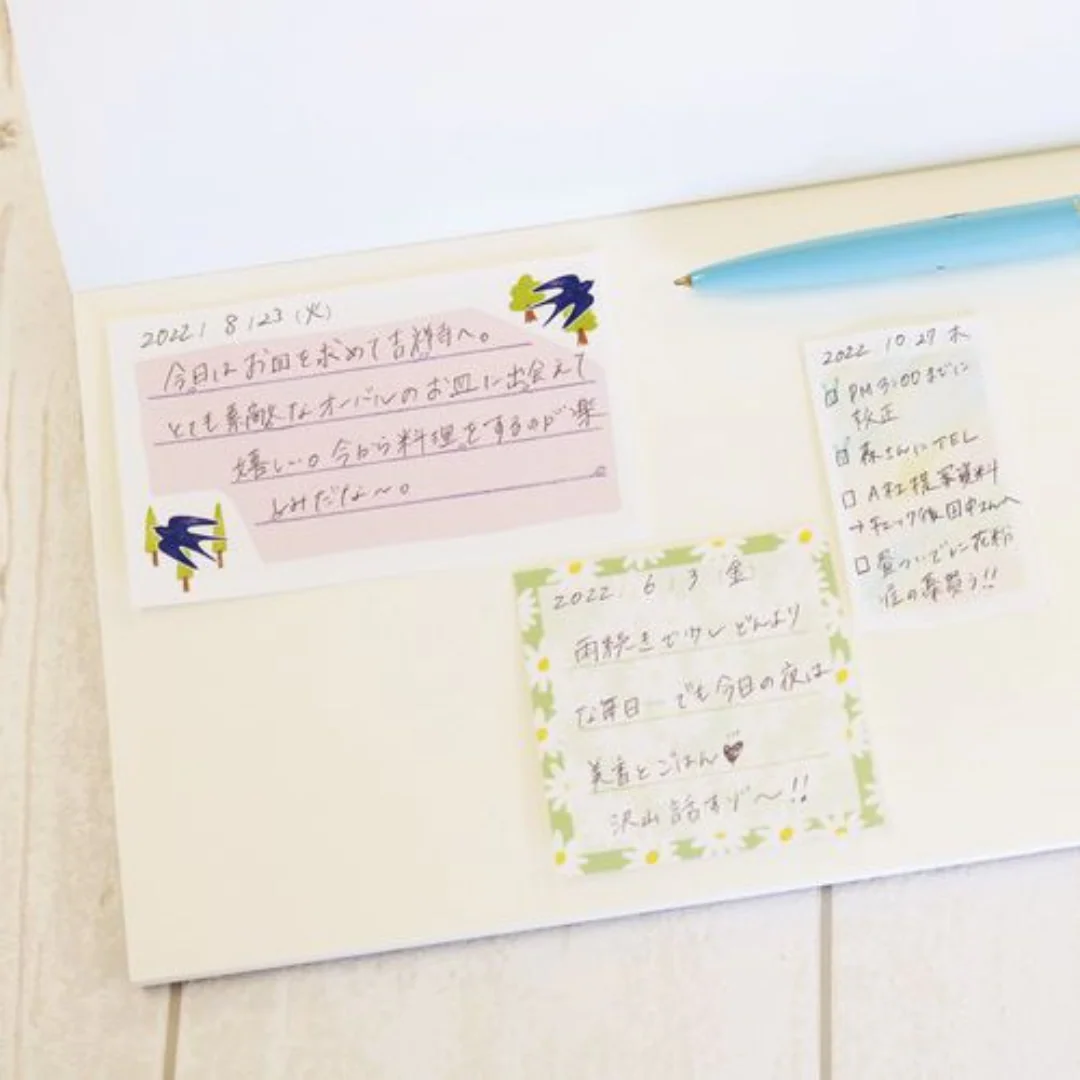 2022 / 8 / 23 (火)
今日はお皿を求めて吉祥寺へ。
とても素敵なオーバルのお皿に出会えて
嬉しい。今から料理をするのが楽
しみだな〜。
2022 / 6 / 3 (金)
雨続きで少しどんより
な毎日 でも今日の夜は
美香とごはん♥
沢山話すゾ〜!!
2022 10 27 木
☑ PM 3:00までに
校正
☑ 森さんにTEL
□ A社提案資料
→チェック後田中さんへ
□ 昼ついでに花粉
症の薬買う!!